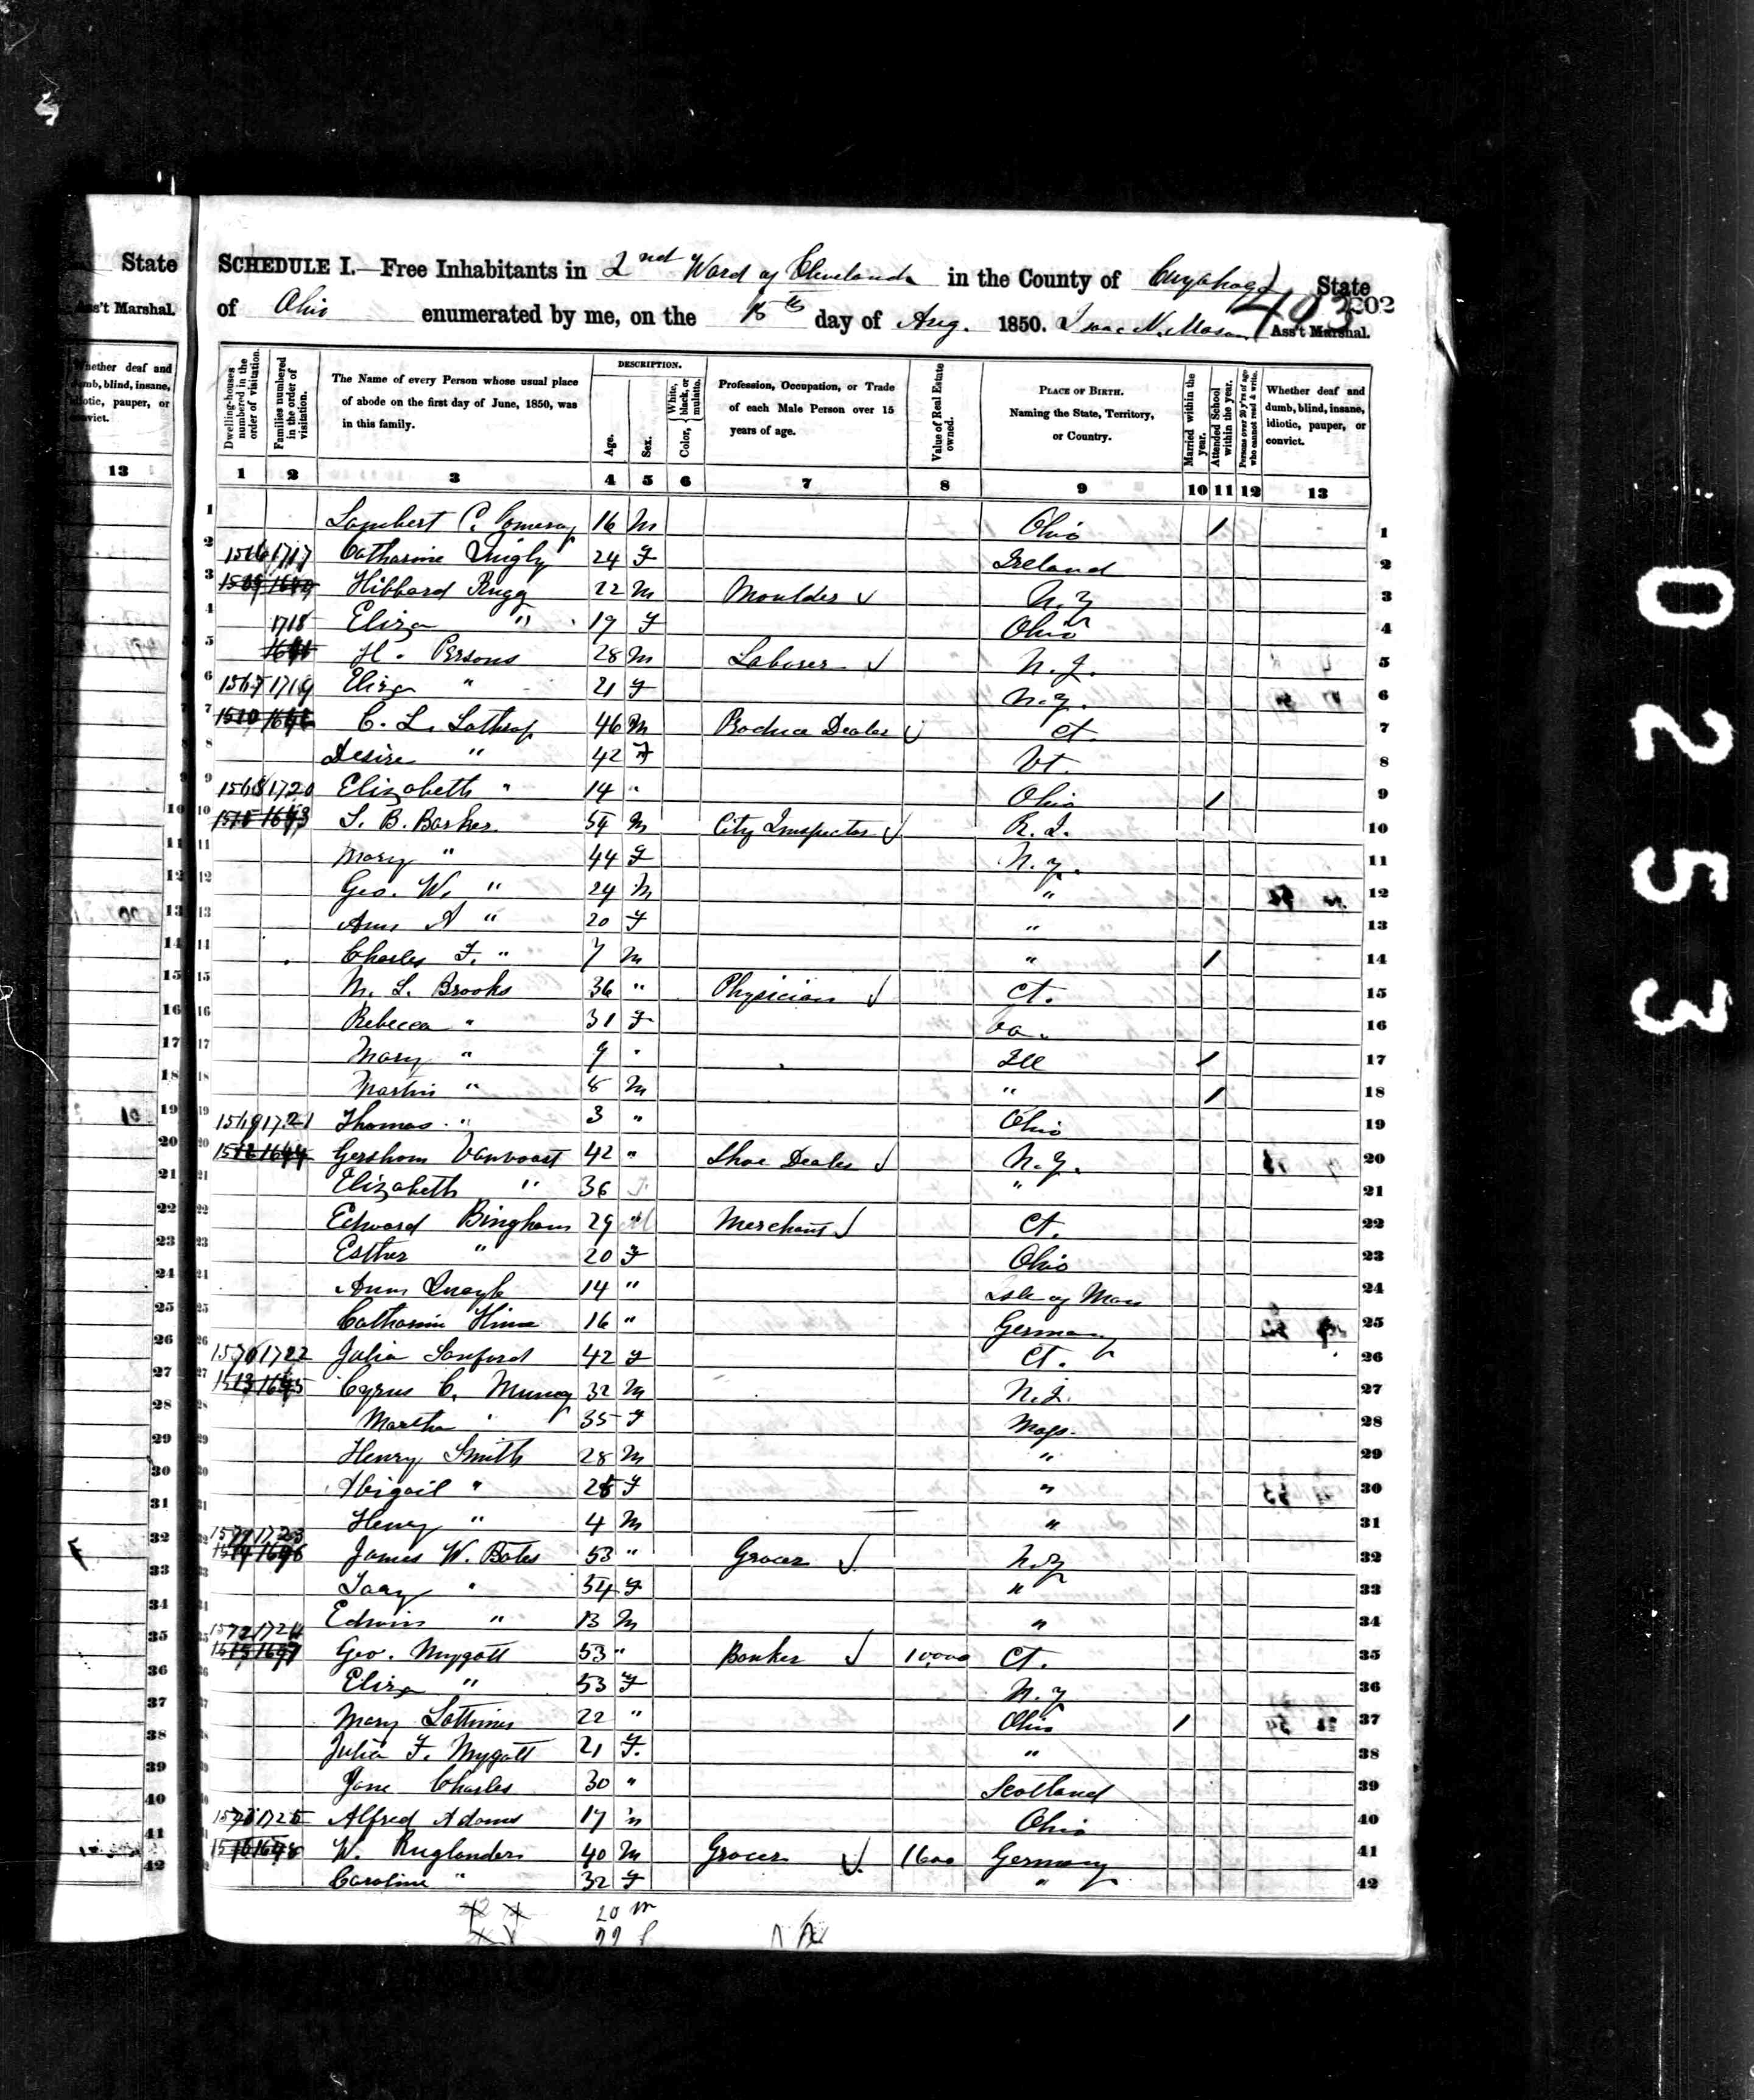 State
Ass't Marshal.
Whether deaf and dumb, blind, insane, idiotic, pauper, or convict.
13
SCHEDULE I.—Free Inhabitants in 2nd Ward of Cleveland in the County of Cuyahoga State
of Ohio enumerated by me, on the 15th day of Aug. 1850. Isaac N. Mason Ass't Marshal.
403 202
Dwelling-houses numbered in the order of visitation.
Families numbered in the order of visitation.
The Name of every Person whose usual place of abode on the first day of June, 1850, was in this family.
DESCRIPTION.
Age.
Sex.
Color, { White, black, or mulatto.
Profession, Occupation, or Trade of each Male Person over 15 years of age.
Value of Real Estate owned.
PLACE OF BIRTH. Naming the State, Territory, or Country.
Married within the year.
Attended School within the year.
Persons over 20 y'rs of age who cannot read & write.
Whether deaf and dumb, blind, insane, idiotic, pauper, or convict.
1 2 3 4 5 6 7 8 9 10 11 12 13
1 Lambert C. Pomeroy 16 M Ohio / 1
2 1566 1717 Catharine Quigly 24 F Ireland 2
3 Hibbard Rugg 22 M Moulder N.Y. 3
4 1718 Eliza " 19 F Ohio 4
5 H. Persons 28 M Laborer N.J. 5
6 1567 1719 Eliza " 21 F N.Y. 6
7 C. L. Lathrop 46 M Produce Dealer Ct. 7
8 Desire " 42 F Vt. 8
9 1568 1720 Elizabeth " 14 " Ohio / 9
10 S. B. Barker 54 M City Inspector R.I. 10
11 Mary " 44 F N.Y. 11
12 Geo. W. " 24 M " 12
13 Ann A " 20 F " 13
14 Charles F. " 7 M " / 14
15 M. L. Brooks 36 " Physician Ct. 15
16 Rebecca " 31 F Va. 16
17 Mary " 9 " Ill / 17
18 Martin " 8 M " / 18
19 1569 1721 Thomas " 3 " Ohio 19
20 Gershom Vanvoast 42 " Shoe Dealer N.Y. 20
21 Elizabeth " 36 F " 21
22 Edward Bingham 29 M Merchant Ct. 22
23 Esther " 20 F Ohio 23
24 Ann Quayle 14 " Isle of Man 24
25 Catharine 16 " Germany 25
26 1570 1722 Julia Sanford 42 F Ct. 26
27 Cyrus C. 32 M N.J. 27
28 Martha " 35 F Mass. 28
29 Henry Smith 28 M " 29
30 Abigail " F " 30
31 Henry " 4 M " 31
32 1571 1723 James W. Bates 53 " Grocer N.Y. 32
33 " 54 F " 33
34 Edwin " 13 M " 34
35 1572 1724 Geo. Mygatt 53 " Banker 10000 Ct. 35
36 Eliza " 53 F N.Y. 36
37 Mary 22 " Ohio / 37
38 Julia F. Mygatt 21 F. " 38
39 Jane Charles 30 " Scotland 39
40 1573 1725 Alfred Adams 17 m Ohio 40
41 W. Ruglander 40 M Grocer 1600 Germany 41
42 Caroline " 32 F " 42
20 m
22 f
0253